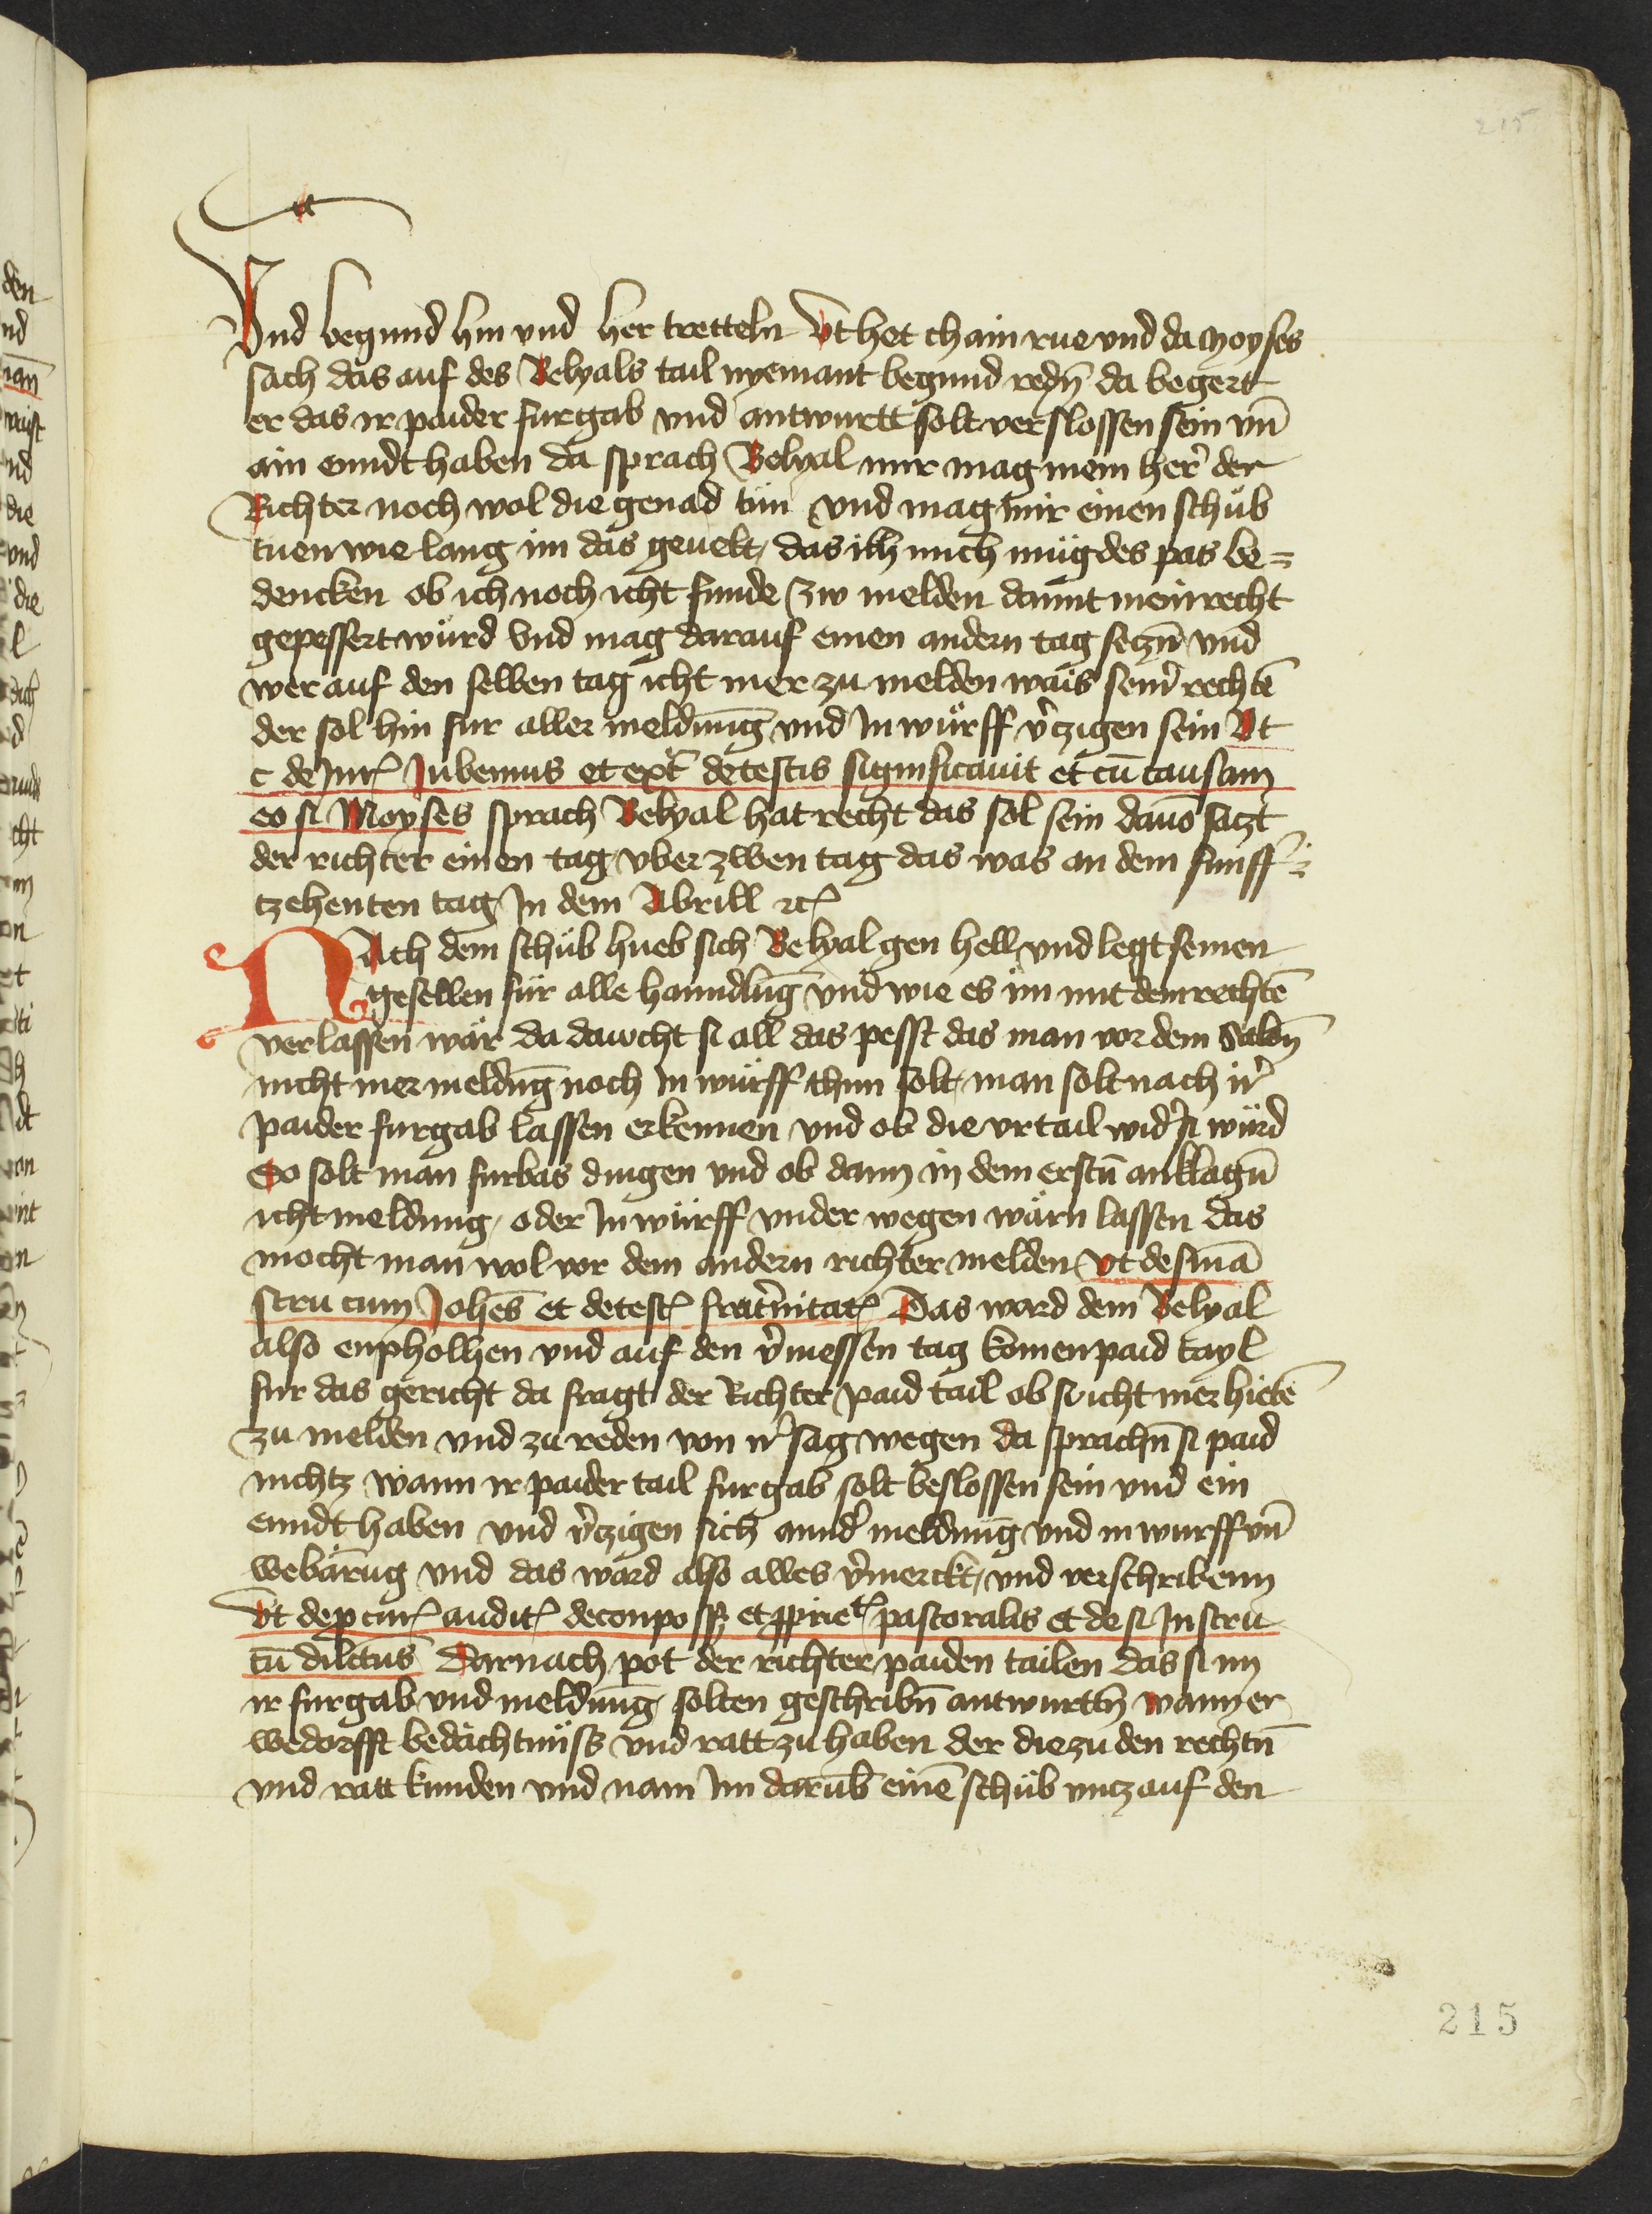 215
Vnd begund hin vnd her tretteln Vt het chain rue vnd da Moyses
sach das auf des Belyals tail nyemant begund redn̄ da begert
er das ir paider furgab vnd antwurtt solt verslossen sein vn̄
ain enndt haben da sprach Belyal mir mag mein her̕ der
Richter noch wol die genad tün vnd mag mir einen schüb
tuen wie lang im das geuelt das ich mich müg des pas be=
dencken ob ich noch icht funde zw melden damit mein recht
gepessert würd Vnd mag darauf einen andern tag seczn̄ vnd
wer auf den selben tag icht mer zu melden wais sein̕ rechtē
der sol hin fur aller meldung vnd In würff v̕czigen sein Vt
c de Jur Jubemus et ext̕ de testis significauit et cū causam
eo si Moyses sprach Belyal hat recht das sol sein dauō saczt
der richter einen tag vber zwen tag das was an dem funff=
tzehenten tag In dem Abrill ꝛc
NAch dem schüb hueb sich Belyal gen hell vnd legt seinen
gesellen für alle hanndlūg vnd wie es im mit dem rechtē
verlassen wär da dawcht si all das pesst das man vor dem Salon̄
nicht mer meldn̄g noch In würff thun solt man solt nach ir̕
paider furgab lassen erkennen vnd ob die vrtail wid̕ si würd
So solt man furbas dingen vnd ob dann in dem erstn̄ anklagn̄
icht meldung oder In würff vnder wegen wärn lassen das
mocht man wol vor dem andern richter melden vt de fi in
stru cum Johēs et de test frat̕nitat Das ward dem Belyal
also enpholhen vnd auf den v̕messen tag komen paid tayl
fur das gericht da fragt der Richter paid tail ob si icht mer hietē
zu melden vnd zu reden von ir̕ sag wegen da sprachn̄ si paid
nichtz wann ir paider tail furgab solt beslossen sein vnd ein
enndt haben vnd v̕czigen sich annd̕ meldung vnd in wurff vn̄
webärūg vnd das ward also alles v̕merckt vnd verschribenn
Vt de pcur audit de conposs et ppriet pastoralis et de fi Instru
tū dilctus Darnach pot der richter paiden tailen das si im
ir furgab vnd meldung solten geschribn̄ antwurtn̄ wann er
wedorfft bedächtnüss vnd ratt zu haben der die zu den rechtn̄
vnd ratt kunden vnd nam Im darub einē schüb vncz auf den
215